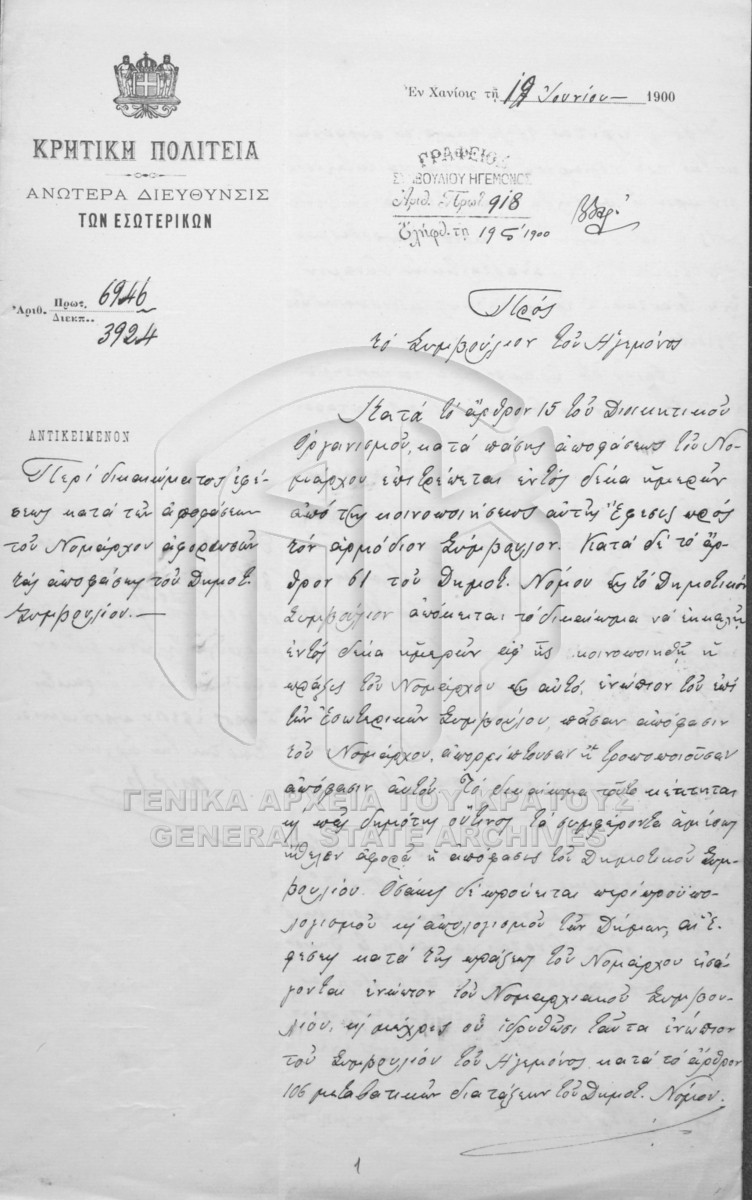 ΚΡΗΤΙΚΗ ΠΟΛΙΤΕΙΑ
ΑΝΩΤΕΡΑ ΔΙΕΥΘΥΝΣΙΣ
ΤΩΝ ΕΣΩΤΕΡΙΚΩΝ
Ἀριθ. Πρωτ. 6946
Διεκπ. 3924
Ἐν Χανίοις τῇ 19 Ἰουνίου 1900
ΓΡΑΦΕΙΟΝ
ΣΥΜΒΟΥΛΙΟΥ ΗΓΕΜΟΝΟΣ
Ἀριθ. Πρωτ. 918
Ἐλήφθ. τῇ 19 1900
ΑΝΤΙΚΕΙΜΕΝΟΝ
Περί δικαιώματος ἐφέ-
σεως κατά τῶν ἀποφάσεων
τοῦ Νομάρχου ἀφορωσῶν
τάς ἀποφάσεις τοῦ Δημοτ.
Συμβουλίου.
Πρός
τό Συμβούλιον τοῦ Ἡγεμόνος
Κατά τό ἄρθρον 15 τοῦ Διοικητικοῦ
Ὀργανισμοῦ, κατά πάσης ἀποφάσεως τοῦ Νο-
μάρχου ἐπιτρέπεται ἐντός δέκα ἡμερῶν
ἀπό τῆς κοινοποιήσεως αὐτῆς ἔφεσις πρός
τόν ἁρμόδιον Σύμβουλον. Κατά δέ τό ἄρ-
θρον 61 τοῦ Δημοτ. Νόμου εἰς τό Δημοτικόν
Συμβούλιον ἀπόκειται τό δικαίωμα νά ἐκκαλῇ
ἐντός δέκα ἡμερῶν ἀφ' ἧς κοινοποιηθῇ ἡ
πρᾶξις τοῦ Νομάρχου εἰς αὐτό, ἐνώπιον τοῦ ἐπί
τῶν Ἐσωτερικῶν Συμβούλου, πᾶσαν ἀπόφασιν
τοῦ Νομάρχου, ἀπορρίπτουσαν ἤ τροποποιοῦσαν
ἀπόφασιν αὐτοῦ. Τό δικαίωμα τοῦτο κέκτηται
καί πᾶς δημότης οὗτινος τά συμφέροντα ἀμέσως
ἤθελεν ἀφορᾷ ἡ ἀπόφασις τοῦ Δημοτικοῦ Συμ-
βουλίου. Ὁσάκις δέ πρόκειται περί προϋπο-
λογισμοῦ καί ἀπολογισμοῦ τῶν Δήμων, αἱ ἐ-
φέσεις κατά τῆς πράξεως τοῦ Νομάρχου εἰσά-
γονται ἐνώπιον τοῦ Νομαρχιακοῦ Συμβου-
λίου, καί μέχρις οὗ ἱδρυθῶσι ταῦτα ἐνώπιον
τοῦ Συμβουλίου τοῦ Ἡγεμόνος κατά τό ἄρθρον
106 μεταβατικῶν διατάξεων τοῦ Δημοτ. Νόμου.
1
ΓΕΝΙΚΑ ΑΡΧΕΙΑ ΤΟΥ ΚΡΑΤΟΥΣ
GENERAL STATE ARCHIVES